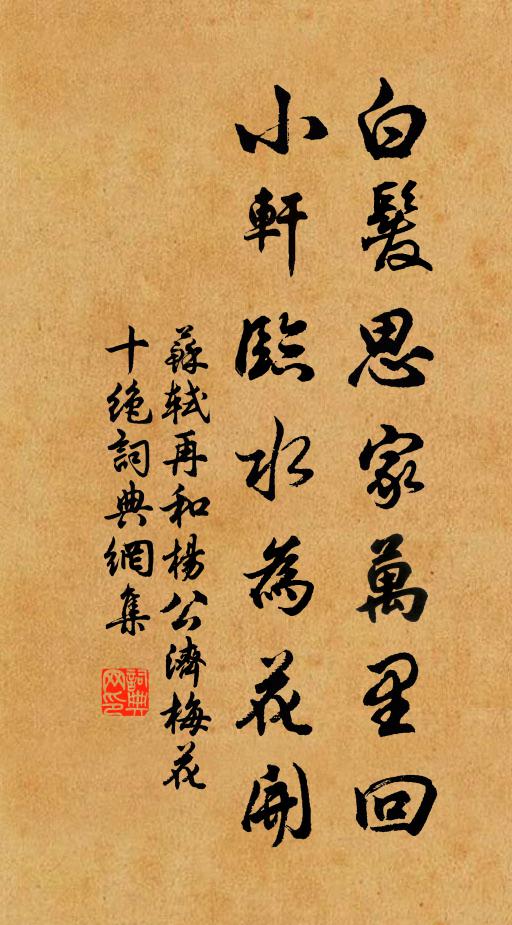 白髮思家萬里回
小軒臨水為花開
蘇軾再和楊公濟梅花
十絕詞典網集
詞典網印